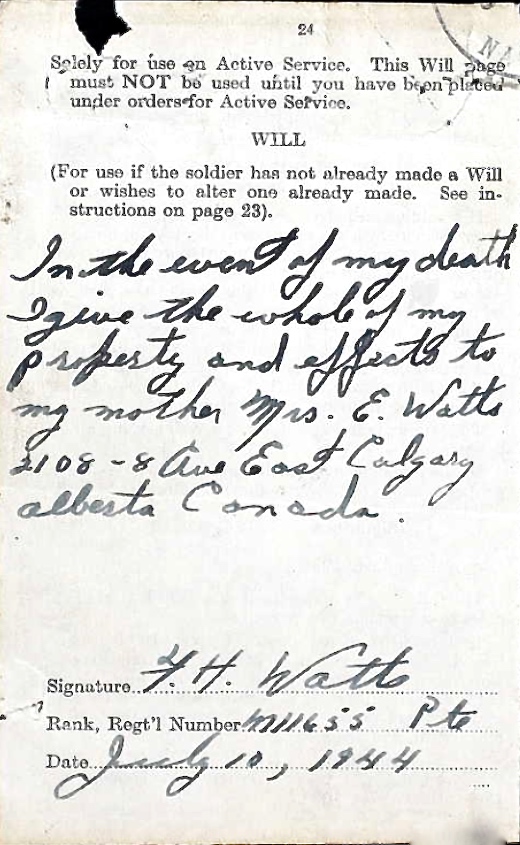 24
Solely for use on Active Service. This Will page
must NOT be used until you have been placed
under orders for Active Service.
WILL
(For use if the soldier has not already made a Will
or wishes to alter one already made. See in-
structions on page 23).
In the event of my death
I give the whole of my
property and effects to
my mother Mrs. E. Watts
2108 - 8 Ave East Calgary
alberta Canada.
Signature F. H. Watts
Rank, Regt'l Number M11655 Pte
Date July 10, 1944